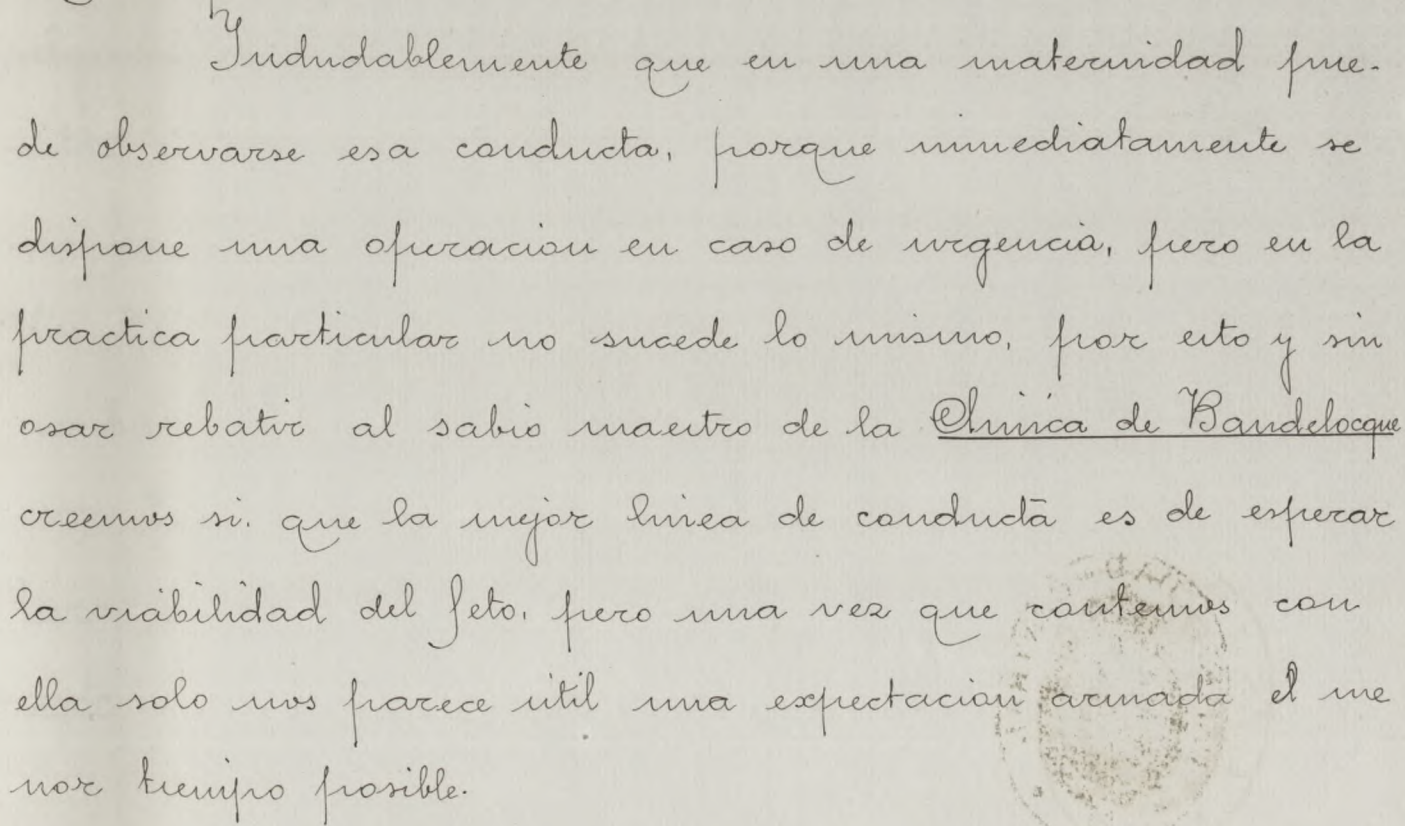 Indudablemente que en una maternidad pue-
de observarse esa conducta, porque inmediatamente se
dispone una operacion en caso de urgencia, pero en la
practica particular no sucede lo mismo, por esto y sin
osar rebatir al sabio maestro de la Clinica de Baudelocque
creemos si. que la mejor linea de conducta es de esperar
la viabilidad del feto, pero una vez que contemos con
ella solo nos parece útil una expectacion armada el me
nor tiempo posible.